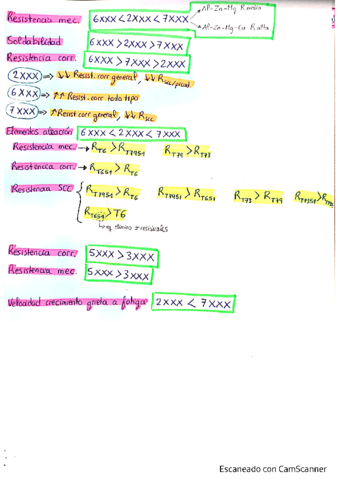 Resistencia mec. 6XXX < 2XXX < 7XXX
Al-Zn-Mg R media
Al-Zn-Mg-Cu R alta
Soldabilidad 6XXX > 2XXX > 7XXX
Resistencia corr. 6XXX > 7XXX > 2XXX
2XXX ⇒ ↓↓ Resist. corr general, ↓↓ R
6XXX ⇒ ↑↑ Resist. corr todo tipo
7XXX ⇒ ↑ Resist corr general, ↓↓ RSCC
Elementos aleación 6XXX < 2XXX < 7XXX
Resistencia mec. → RT6 > RT7451 RT79 > RT73
Resistencia corr. → RT651 > RT6
Resistencia SCC { RT7451 > RT6 RT7451 > RT651 RT73 > RT79 RT7351 >
RT651 > T6
Resistencia corr. 5XXX > 3XXX
Resistencia mec. 5XXX > 3XXX
Velocidad crecimiento grieta a fatiga 2XXX < 7XXX
Escaneado con CamScanner